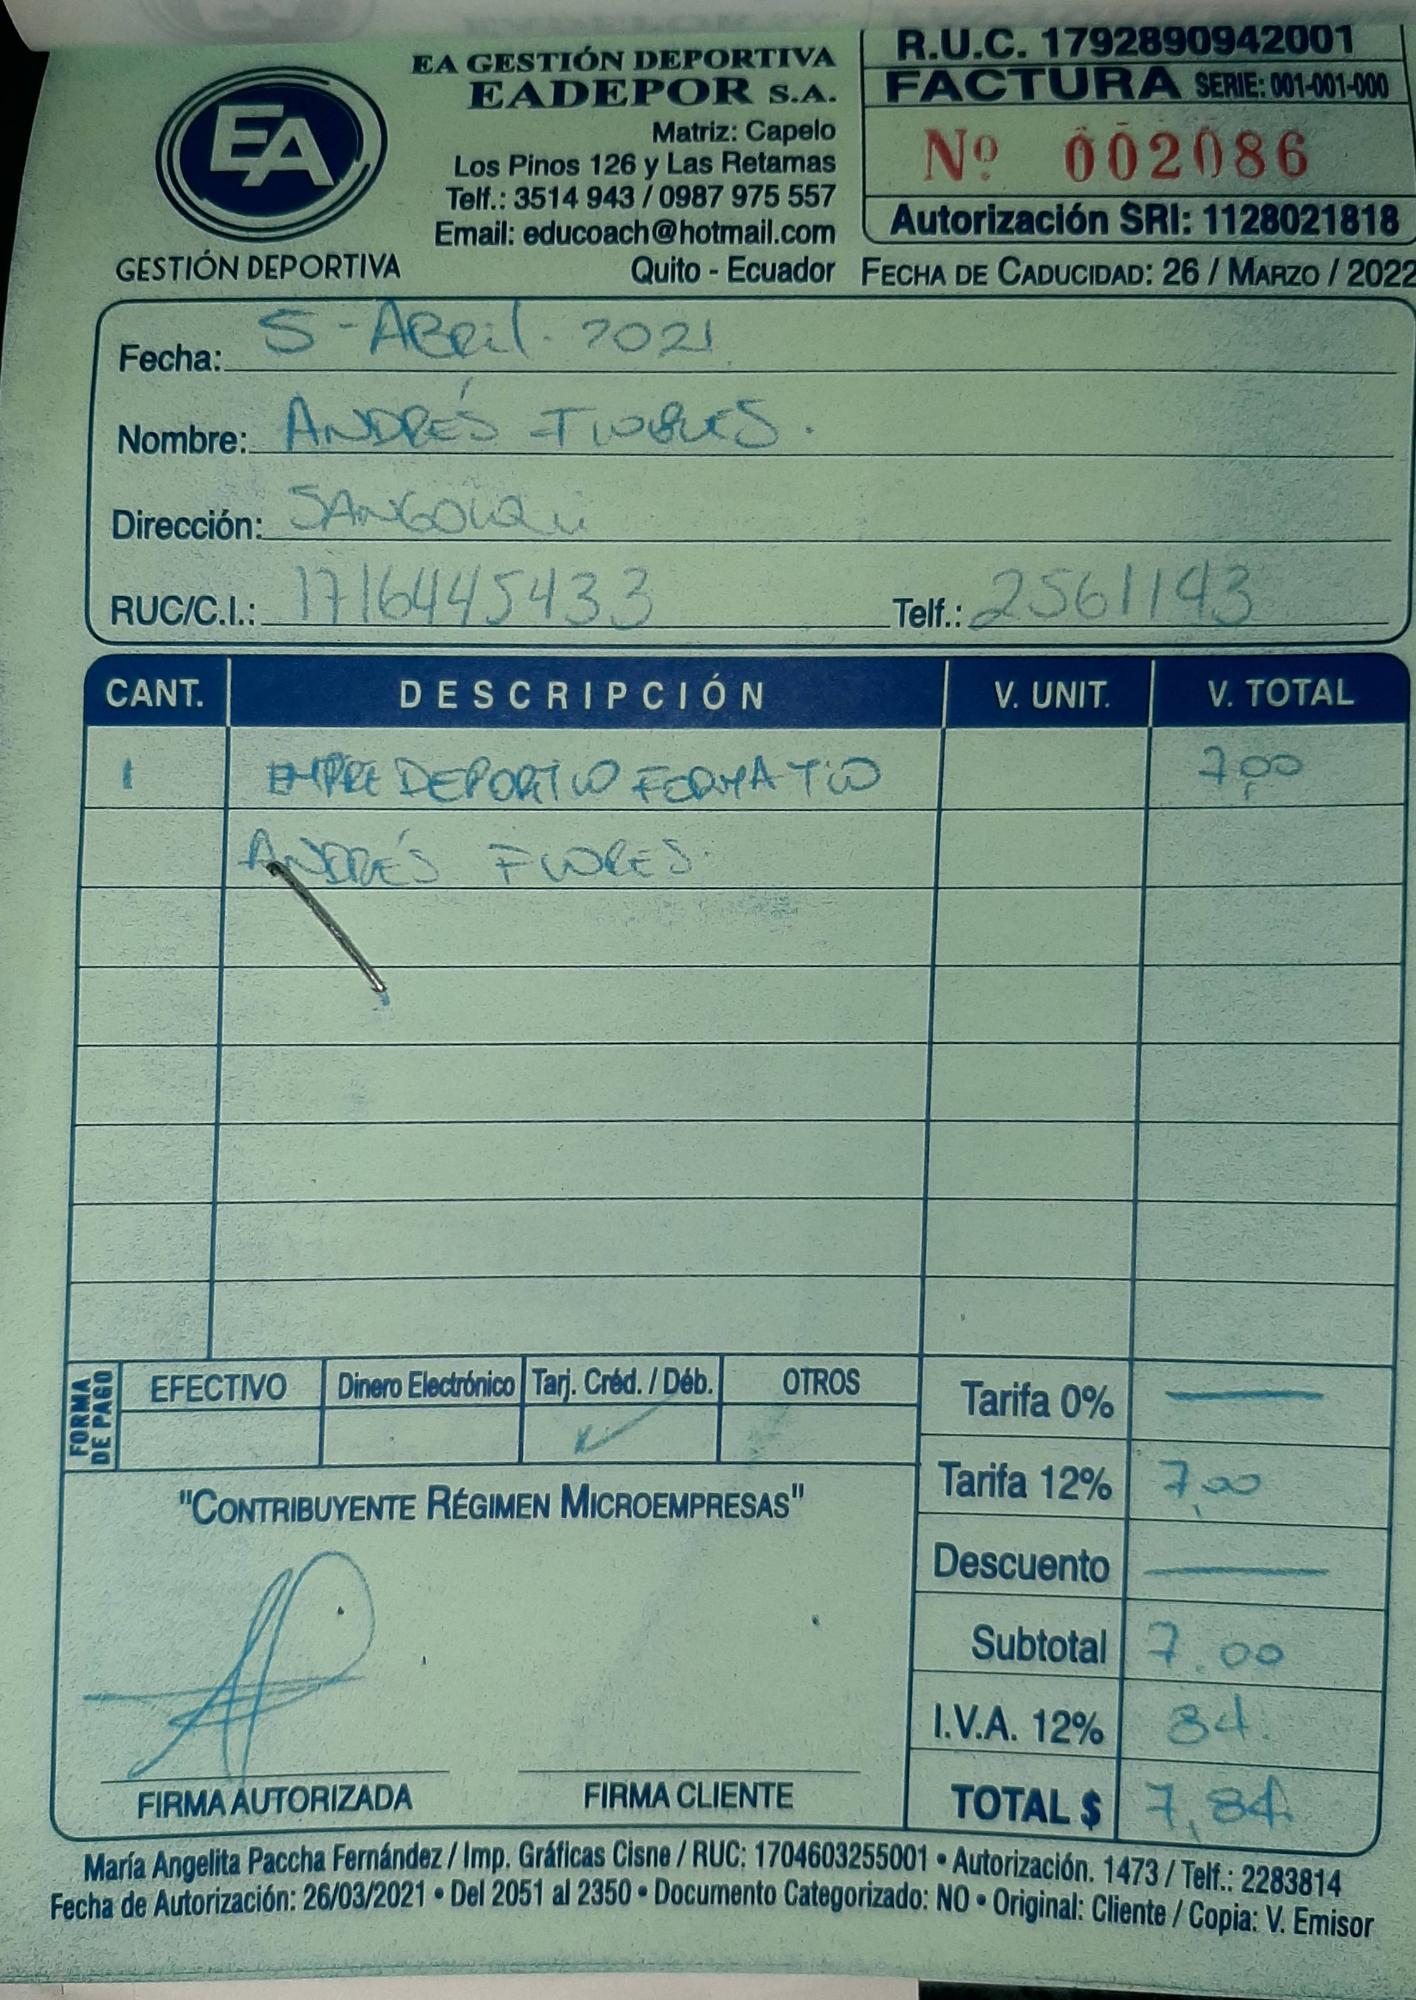 EA
GESTIÓN DEPORTIVA
EA GESTIÓN DEPORTIVA
EADEPOR S.A.
Matriz: Capelo
Los Pinos 126 y Las Retamas
Telf.: 3514 943 / 0987 975 557
Email: educoach@hotmail.com
Quito - Ecuador
R.U.C. 1792890942001
FACTURA SERIE: 001-001-000
Nº 002086
Autorización SRI: 1128021818
FECHA DE CADUCIDAD: 26 / MARZO / 2022
Fecha: 5 - ABRIL. 2021
Nombre: ANDRÉS
Dirección: SANGOLQUI
RUC/C.I.: 1716445433 Telf.: 2561143
CANT. DESCRIPCIÓN V. UNIT. V. TOTAL
1 DEPORTIVO FORMATIVO 7,00
ANDRÉS FLORES.
FORMA DE PAGO
EFECTIVO Dinero Electrónico Tarj. Créd. / Déb. OTROS
Tarifa 0% —
Tarifa 12% 7,00
Descuento —
Subtotal 7.00
I.V.A. 12% 84
TOTAL $ 7,84
"CONTRIBUYENTE RÉGIMEN MICROEMPRESAS"
FIRMA AUTORIZADA FIRMA CLIENTE
María Angelita Paccha Fernández / Imp. Gráficas Cisne / RUC: 1704603255001 • Autorización. 1473 / Telf.: 2283814
Fecha de Autorización: 26/03/2021 • Del 2051 al 2350 • Documento Categorizado: NO • Original: Cliente / Copia: V. Emisor